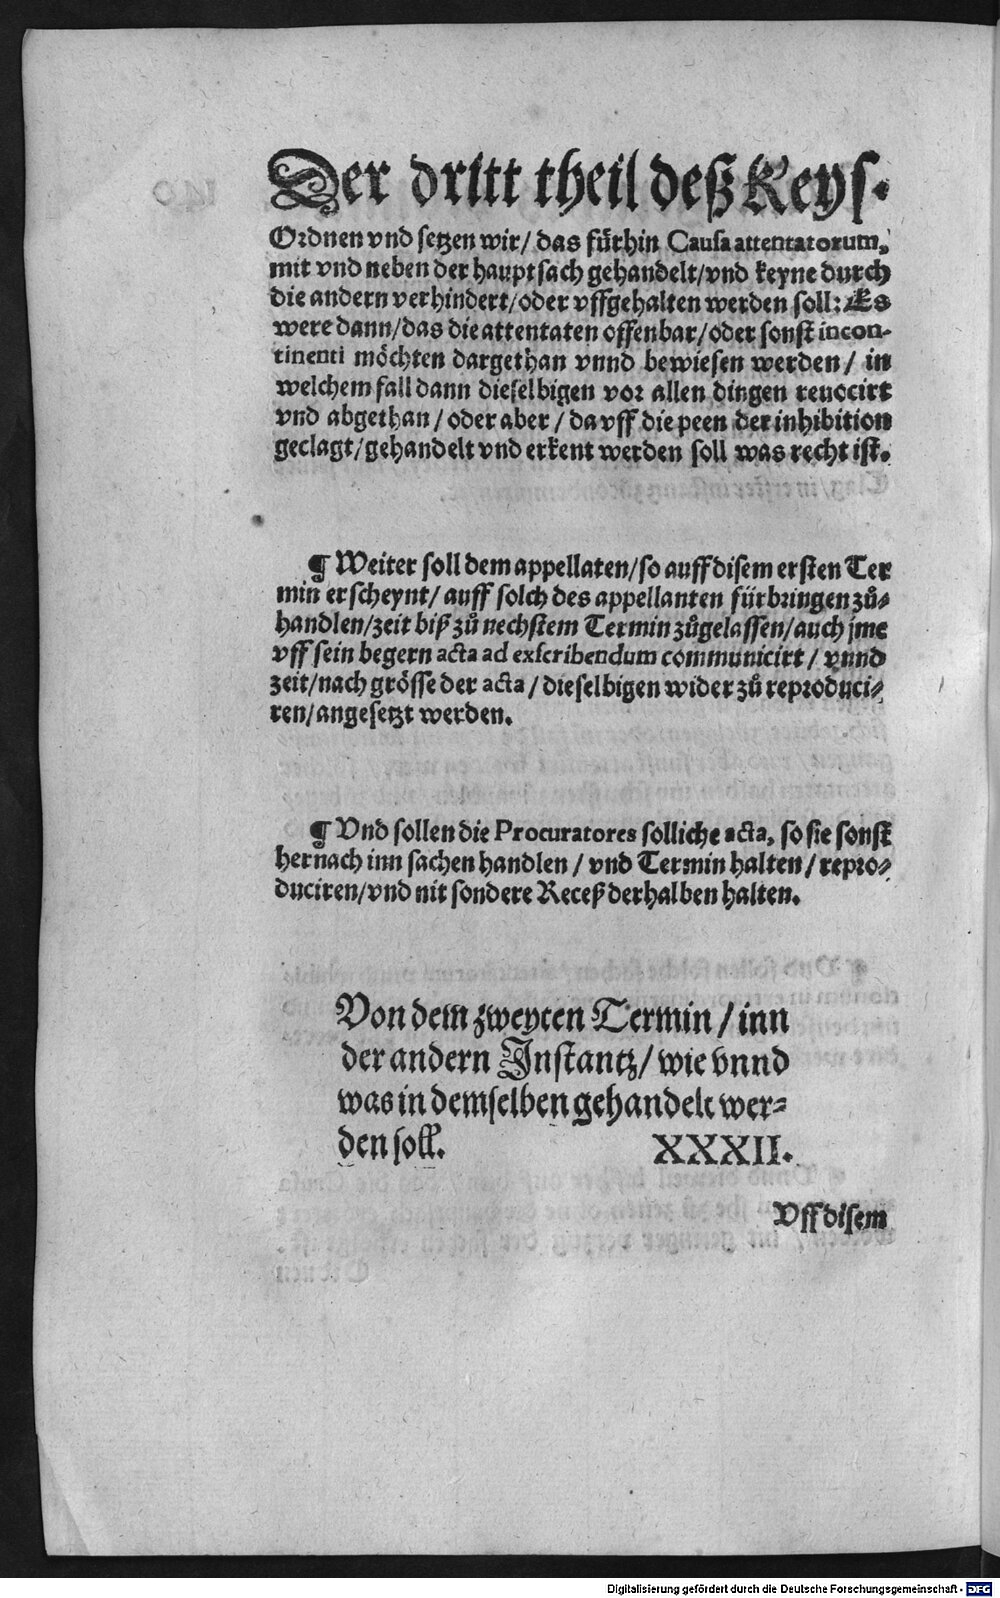 Der dritt theil deß Keys.
Ordnen vnd setzen wir/ das fürhin Causa attentatorum,
mit vnd neben der hauptsach gehandelt/vnd keyne durch
die andern verhindert/oder vffgehalten werden soll: Es
were dann/das die attentaten offenbar/oder sonst incon-
tinenti möchten dargethan vnnd bewiesen werden/ in
welchem fall dann dieselbigen vor allen dingen reuocirt
vnd abgethan/oder aber/ da vff die peen der inhibition
geclagt/gehandelt vnd erkent werden soll was recht ist.
¶ Weiter soll dem appellaten/so auff disem ersten Ter
min erscheynt/ auff solch des appellanten fürbringen zů-
handlen/zeit biß zů nechstem Termin zůgelassen/auch jme
vff sein begern acta ad exscribendum communicirt/ vnnd
zeit/nach grösse der acta/ dieselbigen wider zů reproduci-
ren/angesetzt werden.
¶ Vnd sollen die Procuratores solliche acta, so sie sonst
hernach inn sachen handlen/ vnd Termin halten/ repro-
duciren/vnd nit sondere Receß derhalben halten.
Von dem zweyten Termin/ inn
der andern Instantz/ wie vnnd
was in demselben gehandelt wer-
den soll. XXXII.
Vff disem
Digitalisierung gefördert durch die Deutsche Forschungsgemeinschaft - DFG